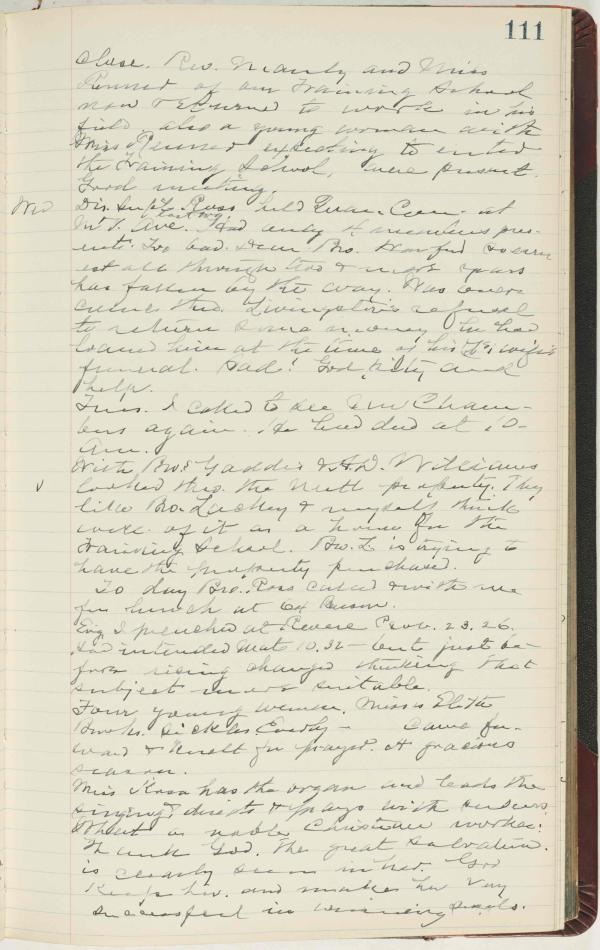 111
close. Rev. Manly and Miss
of our Training School
now returned to work in his
field also a young woman with
Miss expecting to enter
the Training School, were present.
Good meeting.
Mo Dis. Supt. Ross held Quar. Con. at
last evg.
Ave. Had only 4 members pres-
ent. Too bad. Dear Bro. so earn
est all through two & more years
has fallen by the way. Was over
come thro. Livingston's refusal
to return some money he had
loaned him at the time of his wife's
funeral. Sad! God pity and
help.
Tues. I called to see Cham-
bers again. He had died at 10-
Am.
With Bros Gaddis & A.D. Williams
looked thro. the property. They
like Bro. Lackey & myself think
well of it as a home for the
Training School. Bro. L is trying to
have the property purchased.
To day Bro. Ross called & with me
for lunch at
Evg I preached at Revere Prov. 23.26.
Had intended Mat. 10.32 - but just be-
fore rising changed thinking that
subject more suitable.
Four young women, Misses
Brooks. - came for-
ward & knelt for prayer. A gracious
season.
Miss has the organ and leads the
singing, directs & prays with seekers
What a noble Christian worker.
Thank God. The great salvation
is clearly seen in her. God
keep her. and make her very
successful in winning souls.